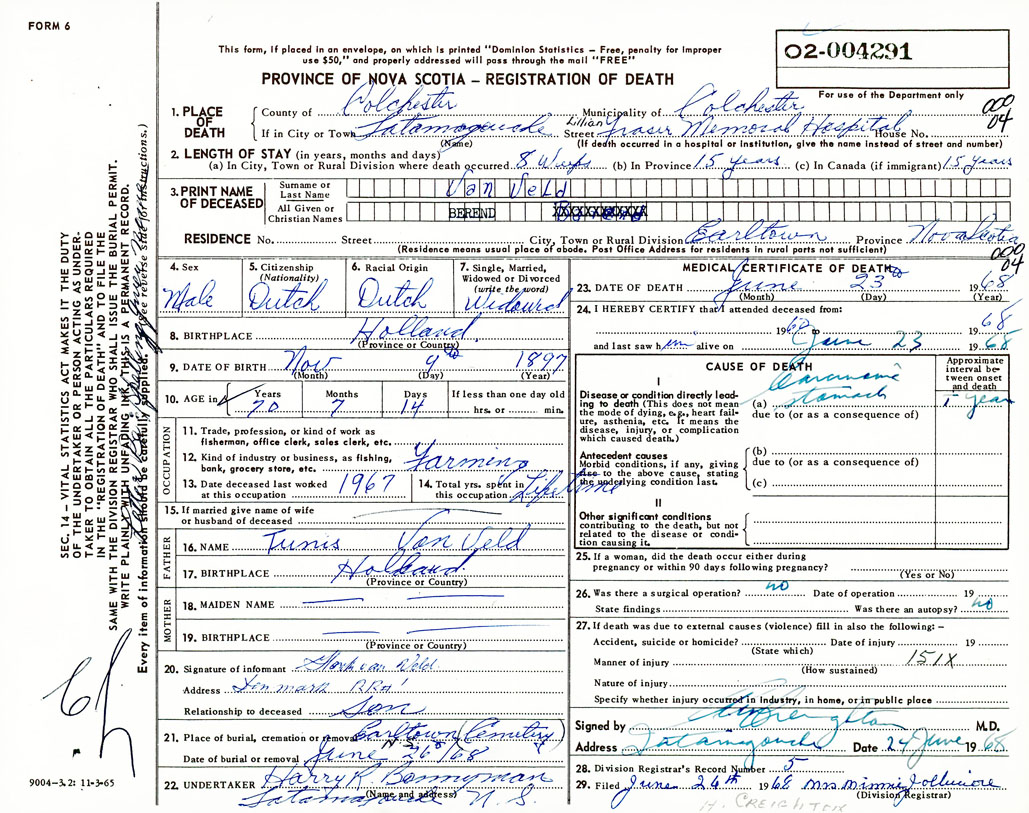 FORM 6
This form, if placed in an envelope, on which is printed "Dominion Statistics – Free, penalty for improper
use $50," and properly addressed will pass through the mail "FREE"
PROVINCE OF NOVA SCOTIA – REGISTRATION OF DEATH
O2-004291
For use of the Department only
000
04
1. PLACE OF DEATH
County of Colchester Municipality of Colchester
If in City or Town Tatamagouche Street Lillian Fraser Memorial Hospital House No.
(Name) (If death occurred in a hospital or institution, give the name instead of street and number)
2. LENGTH OF STAY (in years, months and days)
(a) In City, Town or Rural Division where death occurred 8 Wks (b) In Province 15 years (c) In Canada (if immigrant) 15 years
3. PRINT NAME OF DECEASED
Surname or Last Name Van Veld
All Given or Christian Names BEREND
RESIDENCE No. Street City, Town or Rural Division Earltown Province Nova Scotia
(Residence means usual place of abode. Post Office Address for residents in rural parts not sufficient)
000
04
4. Sex Male
5. Citizenship (Nationality) Dutch
6. Racial Origin Dutch
7. Single, Married, Widowed or Divorced (write the word) Widowed
8. BIRTHPLACE Holland
(Province or Country)
9. DATE OF BIRTH Nov 9th 1897
(Month) (Day) (Year)
10. AGE in Years Months Days If less than one day old
70 7 14 hrs. or min.
OCCUPATION
11. Trade, profession, or kind of work as
fisherman, office clerk, sales clerk, etc.
12. Kind of industry or business, as fishing,
bank, grocery store, etc. Farming
13. Date deceased last worked at this occupation 1967
14. Total yrs. spent in this occupation Lifetime
15. If married give name of wife
or husband of deceased
FATHER
16. NAME Tunis Van Veld
17. BIRTHPLACE Holland
(Province or Country)
MOTHER
18. MAIDEN NAME
19. BIRTHPLACE
(Province or Country)
20. Signature of informant
Address Denmark RR#1
Relationship to deceased Son
21. Place of burial, cremation or removal Earltown (Cemetery)
Date of burial or removal June 26/68
22. UNDERTAKER Harry R. Bonnyman
(Name and address)
Tatamagouche N.S.
MEDICAL CERTIFICATE OF DEATH
23. DATE OF DEATH June 23 1968
(Month) (Day) (Year)
24. I HEREBY CERTIFY that I attended deceased from:
1968
and last saw him alive on June 23 1968
CAUSE OF DEATH
Approximate interval between onset and death
I
Disease or condition directly leading to death (This does not mean the mode of dying, e.g., heart failure, asthenia, etc. It means the disease, injury, or complication which caused death.)
(a) Carcinoma stomach 1 year
due to (or as a consequence of)
Antecedent causes
Morbid conditions, if any, giving rise to the above cause, stating the underlying condition last.
(b)
due to (or as a consequence of)
(c)
II
Other significant conditions
contributing to the death, but not related to the disease or condition causing it.
25. If a woman, did the death occur either during
pregnancy or within 90 days following pregnancy?
(Yes or No)
26. Was there a surgical operation? no Date of operation 19
State findings Was there an autopsy? no
27. If death was due to external causes (violence) fill in also the following: –
Accident, suicide or homicide? Date of injury 19
(State which)
Manner of injury 151X
(How sustained)
Nature of injury
Specify whether injury occurred in industry, in home, or in public place
Signed by Creighton M.D.
Address Tatamagouche Date 24 June 1968
28. Division Registrar's Record Number 5
29. Filed June 26th 1968 Mrs Minnie
(Division Registrar)
H. CREIGHTON
SEC. 14 – VITAL STATISTICS ACT MAKES IT THE DUTY
OF THE UNDERTAKER OR PERSON ACTING AS UNDER-
TAKER TO OBTAIN ALL THE PARTICULARS REQUIRED
IN THE "REGISTRATION OF DEATH" AND TO FILE THE
SAME WITH THE DIVISION REGISTRAR WHO SHALL ISSUE THE BURIAL PERMIT.
WRITE PLAINLY WITH UNFADING INK, THIS IS A PERMANENT RECORD.
Every item of information should be carefully supplied. (See reverse side for instructions.)
9004-3.2: 11-3-65